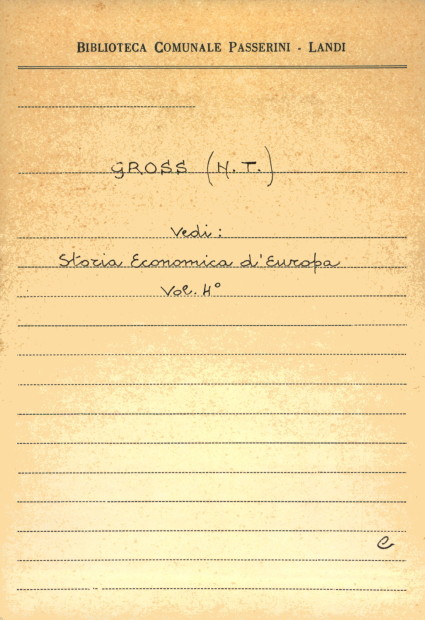 BIBLIOTECA COMUNALE PASSERINI - LANDI
GROSS (N.T.)
Vedi:
Storia Economica d'Europa
Vol. 4°
e